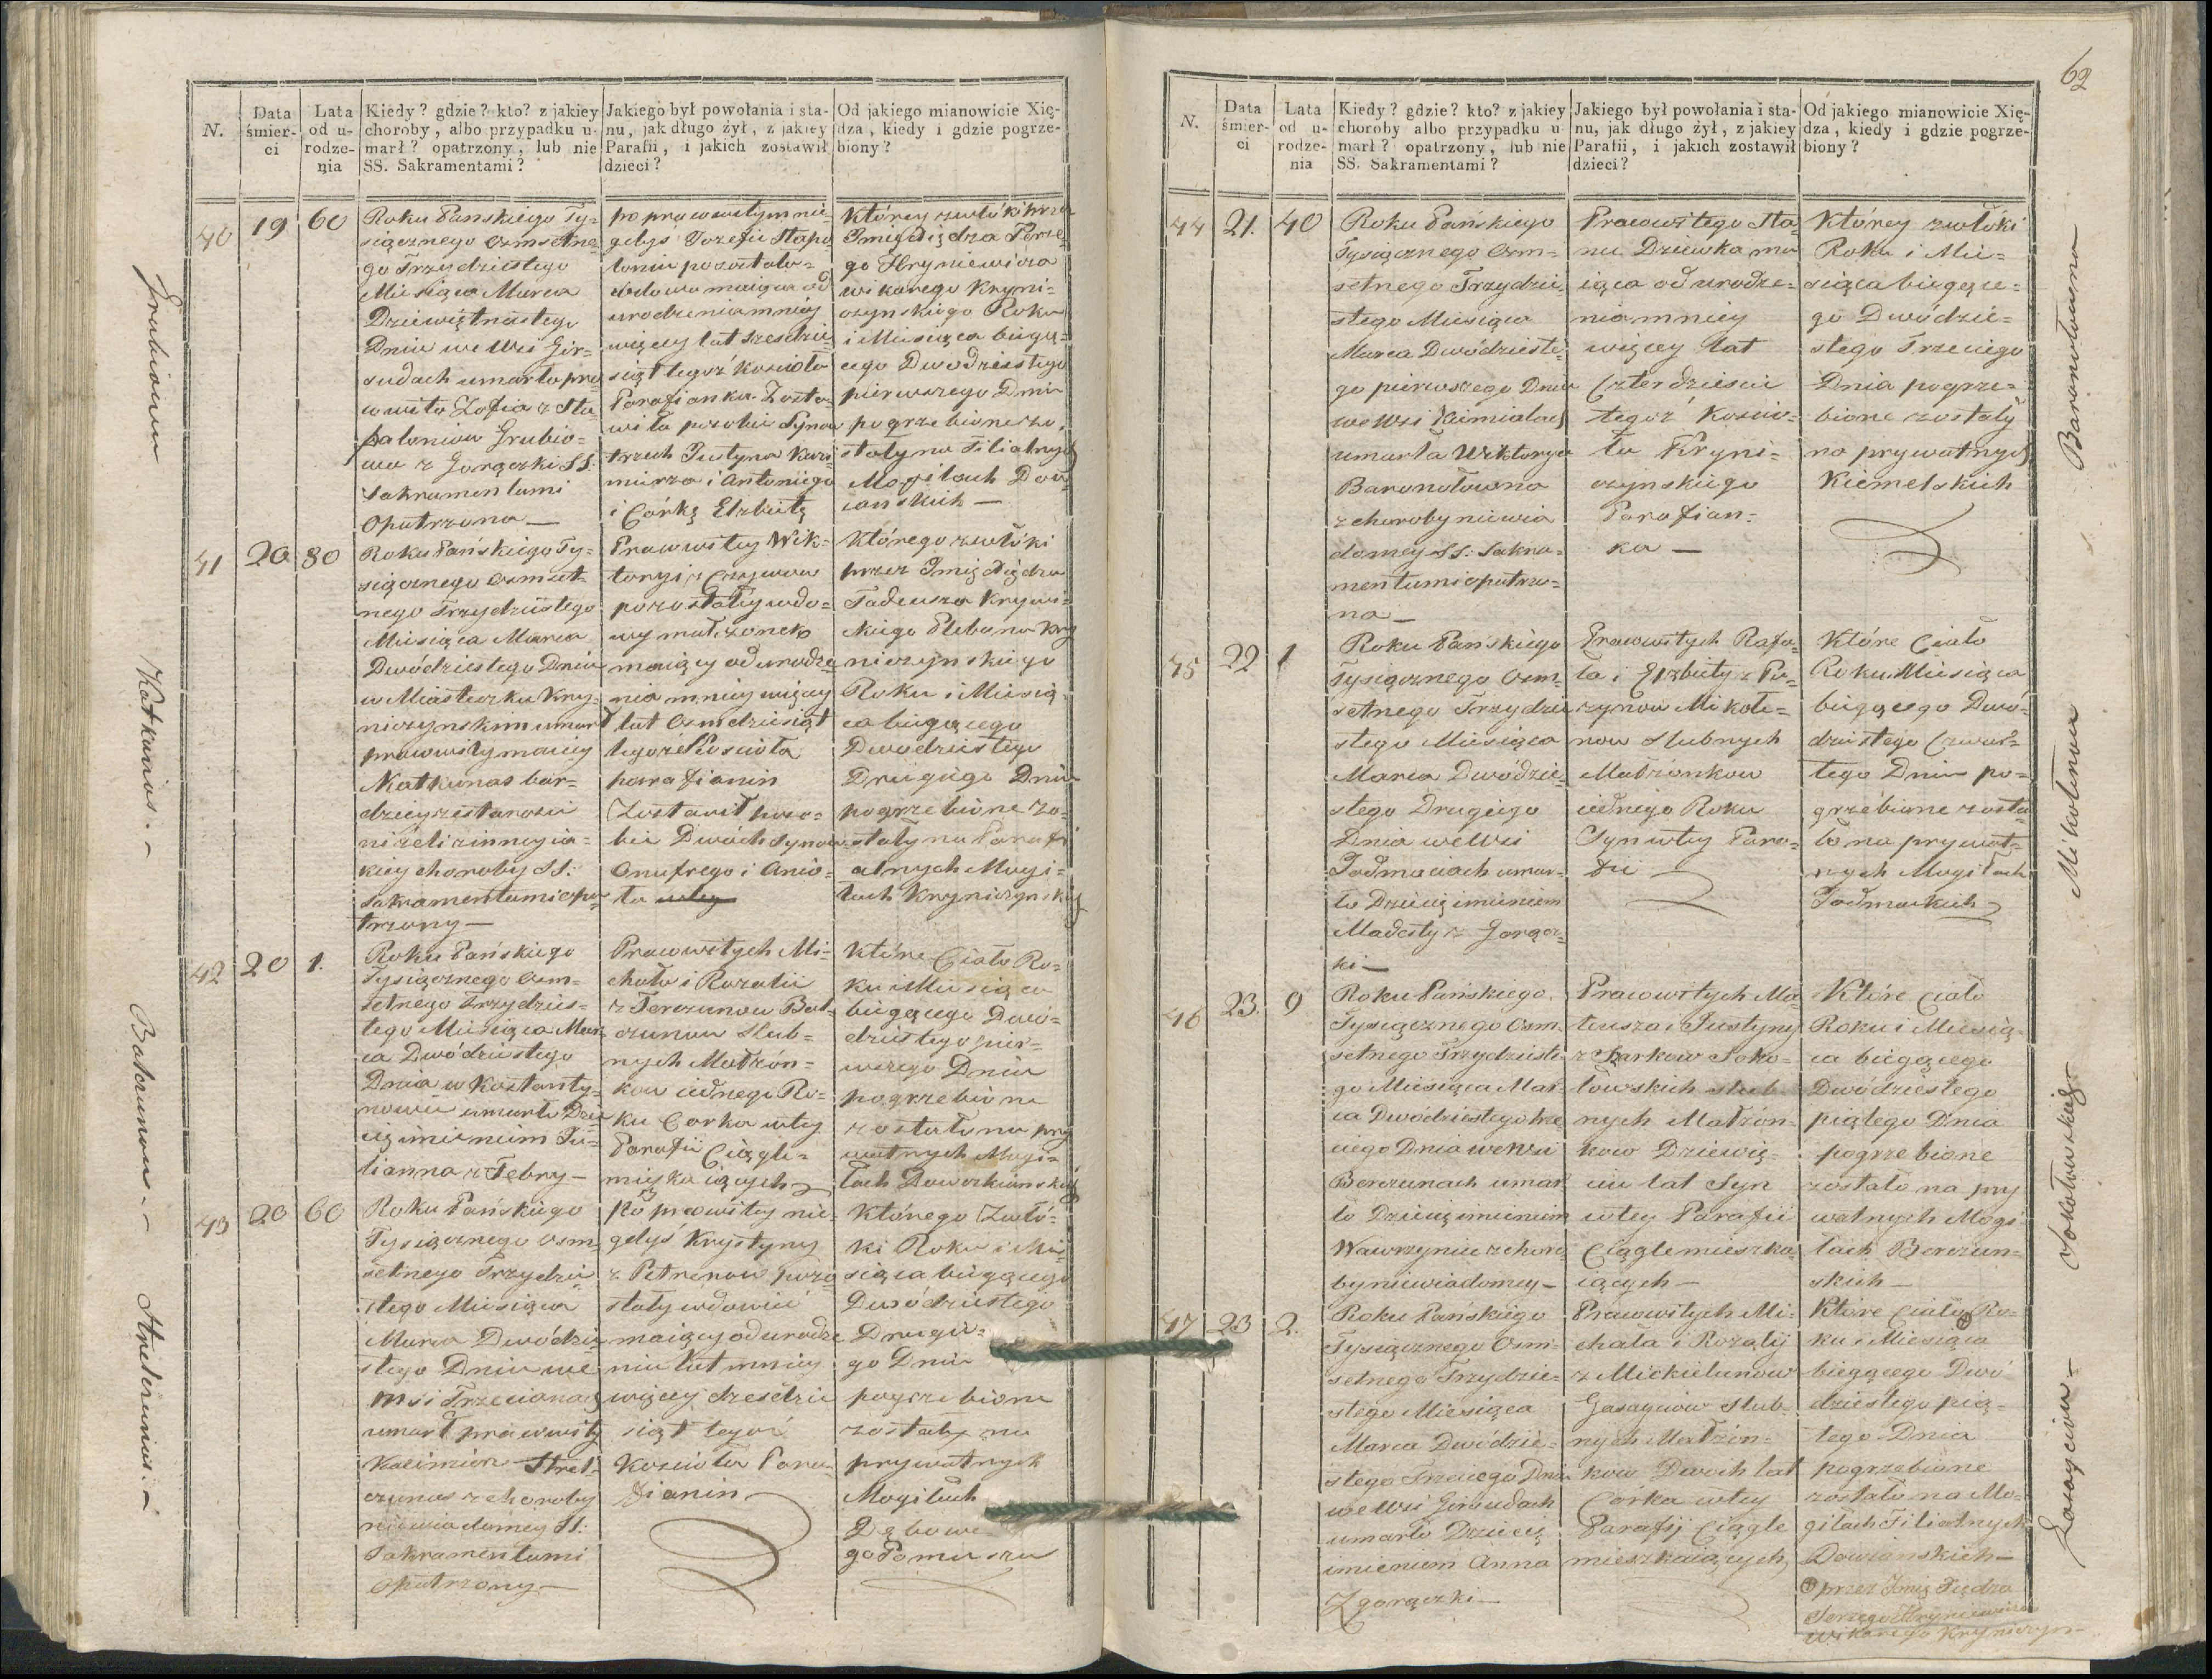 N.
Data śmier-
ci
Lata
od u-
rodze-
nia
Kiedy? gdzie? kto? z jakiey
choroby, albo przypadku u-
marł? opatrzony, lub nie
SS. Sakramentami?
Jakiego był powołania i sta-
nu, jak długo żył, z jakiey
Parafii, i jakich zostawił
dzieci?
Od jakiego mianowicie Xię-
dza, kiedy i gdzie pogrze-
biony?
Grubiowa
40
19
60
Roku Pańskiego Ty-
siącznego Osmsetne-
go Trzydziestego
Miesiąca Marca
Dziewiętnastego
Dnia we Wsi Gir-
sudach umarła pra
cowita Zofia z Sta-
paloniow Grubio-
wa z Gorączki SS.
Sakramentami
Opatrzona —
po pracowitym nie-
gdyś Jozefie Stapa
loniu pozostała-
wdowa maiąca od
urodzenia mniey
więcey lat Szesdzie-
siąt tegoż Kościoła
Parafianka Zosta-
wiła po sobie Synow
trzech Justyna Kazi-
mierza i Antoniego
i Córkę Elzbietę
Którey zwłoki przez
Imię Xiędza Jerze-
go Hryniewicza
wikarego Kryni-
czynskiego Roku
i Miesiąca bieżą-
cego Dwodziestego
pierwszego Dnia
pogrzebione zo-
stały na Filialnych
Mogiłach Dow-
ianskich —
Katkunas. -
41
20
80
Roku Pańskiego Ty-
siącznego Osmset-
nego Trzydziestego
Miesiąca Marca
Dwódziestego Dnia
w Miasteczku Kry-
niczynskim umarł
pracowity Maciey
Katkunas bar-
dziey z starości
niżeli z inney ia-
kiey choroby SS.
Sakramentami opa-
trzony —
Pracowitey Wik-
toryi z
pozostałey wdo-
wy małżonek
maiący od urodze
nia mniey więcey
lat Osmdziesiąt
tegoż Kościoła
parafianin
Zostawił po so-
bie Dwóch Synow
Onufrego i Anio-
ła
Którego zwłoki
przez Imię Xiędza
Tadeusza Krywi-
ckiego Plebana Kry
niczynskiego
Roku i Miesią-
ca bieżącego
Dwodziestego
Drugiego Dnia
pogrzebione zo-
stały na Parafi
alnych Mogi-
łach Kryniczynskich
Balczunow. -
42
20
1.
Roku Pańskiego
Tysiącznego Osm-
setnego Trzydzies-
tego Miesiąca Mar-
ca Dwódziestego
Dnia w Kostanty-
nowie umarło Dzie
cię imieniem Ju-
lianna z Febry —
Pracowitych Mi-
chała i Rozalii
z Terezunow Bal-
czunow Slub-
nych Małżon-
kow iednego Ro-
ku Corka wtey
Parafii Ciągle-
mieszkaiących
Które Ciało Ro-
ku i Miesiąca
bieżącego Dwó-
dziestego pier-
wszego Dnia
pogrzebione
zostało na pry
watnych Mogi-
łach
Strelczunas. -
43
20
60
Roku Pańskiego
Tysiącznego Osm
setnego Trzydzie
stego Miesiąca
Marca Dwódzie
stego Dnia we
Wsi Trzecianach
umarł pracowity
Kazimierz Strel-
czunas z choroby
niewiadomey SS.
Sakramentami
opatrzony —
Po pracowitey nie-
gdyś Krystyny
z Petrenow pozo
stały wdowiec
maiący od urodze
nia lat mniey
więcey szesdzie
siąt tegoż
Kościoła Para-
fianin
Którego Zwło-
ki Roku i Mie-
siąca bieżącego
Dwódziestego
Drugie-
go Dnia
pogrzebione
zostały na
prywatnych
Mogiłach
Dębowe-
go Pomusza
62
N.
Data
śmier-
ci
Lata
od u-
rodze-
nia
Kiedy? gdzie? kto? z jakiey
choroby albo przypadku u
marł? opatrzony, lub nie
SS. Sakramentami?
Jakiego był powołania i sta-
nu, jak długo żył, z jakiey
Parafii, i jakich zostawił
dzieci?
Od jakiego mianowicie Xię-
dza, kiedy i gdzie pogrze-
biony?
44
21.
40
Roku Pańskiego
Tysiącznego Osm-
setnego Trzydzie-
stego Miesiąca
Marca Dwódzieste-
go pierwszego Dnia
we Wsi Kiemialach
umarła Wiktorya
Baranotowna
z choroby niewia
domey SS. Sakra-
mentami opatrzo-
na —
Pracowitego Sta-
nu Dziewka ma
iąca od urodze-
nia mniey
więcey lat
Czterdzieści
tegoż Kościo-
ła Kryni-
czynskiego
Parafian-
ka —
Którey zwłoki
Roku i Mie-
siąca bieżące-
go Dwodzie-
stego Trzeciego
Dnia pogrze-
bione zostały
na prywatnych
Kiemelskich
Baranotowna
45
22
1
Roku Pańskiego
Tysiącznego Osm-
setnego Trzydzie
stego Miesiąca
Marca Dwodzie-
stego Drugiego
Dnia we Wsi
Podmaciach umar-
ło Dziecię imieniem
Madesty z Gorącz-
ki —
Pracowitych Rafa-
ła i Elzbiety z Pu-
zynow Mikołe-
now Slubnych
Małżonkow
iednego Roku
Syn wtey Para-
fii
Które Ciało
Roku i Miesiąca
bieżącego Dwó-
dziestego Czwar-
tego Dnia po-
grzebione zosta-
ło na prywat-
nych Mogiłach
Podmackich
Mikołunow
46
23.
9
Roku Pańskiego
Tysiącznego Osm-
setnego Trzydzieste
go Miesiąca Mar-
ca Dwodziestego trze
ciego Dnia we Wsi
Berezunach umar
ło Dziecię imieniem
Wawrzyniec z choro
by niewiadomey —
Pracowitych Ma-
teusza i Justyny
z Sarkow Soko-
łowskich slub-
nych Małżon-
kow Dziewię-
ciu lat Syn
wtey Parafii
Ciągle mieszka-
iących —
Które Ciało
Roku i Miesią-
ca bieżącego
Dwódziestego
piątego Dnia
pogrzebione
zostało na pry
watnych Mogi
łach Berezun-
skich —
Sokołowskich
47
23
2.
Roku Pańskiego
Tysiącznego Osm-
setnego Trzydzie-
stego Miesiąca
Marca Dwódzie-
stego Trzeciego Dnia
we Wsi Girsudach
umarło Dziecię
imieniem Anna
Z gorączki —
Pracowitych Mi-
chała i Rozalij
z Mickielunow
Gasayciow Slub-
nych Małżon-
kow Dwoch lat
Corka wtey
Parafij Ciągle
mieszkaiących,
Które Ciało Ro-
ku i Miesiąca
bieżącego Dwo
dziestego pią-
tego Dnia
pogrzebione
zostało na Mo-
giłach Filialnych
Dowianskich —
⊕ przez Imię Xiędza
Jerzego Hryniewicza
wikarego Kryniczyn-